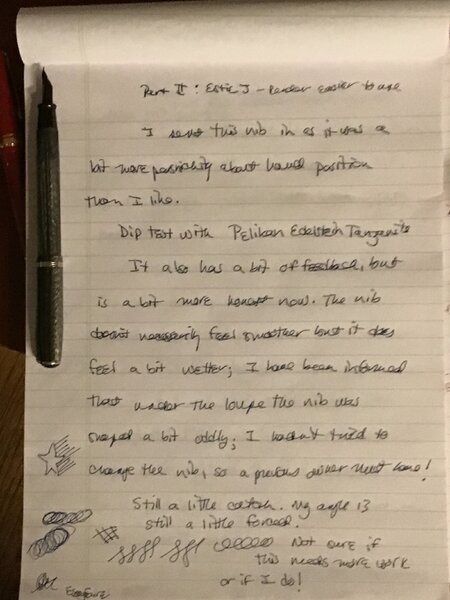 Part II: Estie J - Render easier to use
I sent this nib in as it was a
bit more persnickity about hand position
than I like.
Dip test with Pelikan Edelstein Tanzanite
It also has a bit of feedback, but
is a bit more honest now. The nib
doesn't necessarily feel smoother but it does
feel a bit wetter; I have been informed
that under the loupe the nib was
shaped a bit oddly; I hadn't tried to
change the nib, so a previous owner must have!
Still a little catch. My angle is
still a little forced.
Not sure if
this needs more work
or if I do!